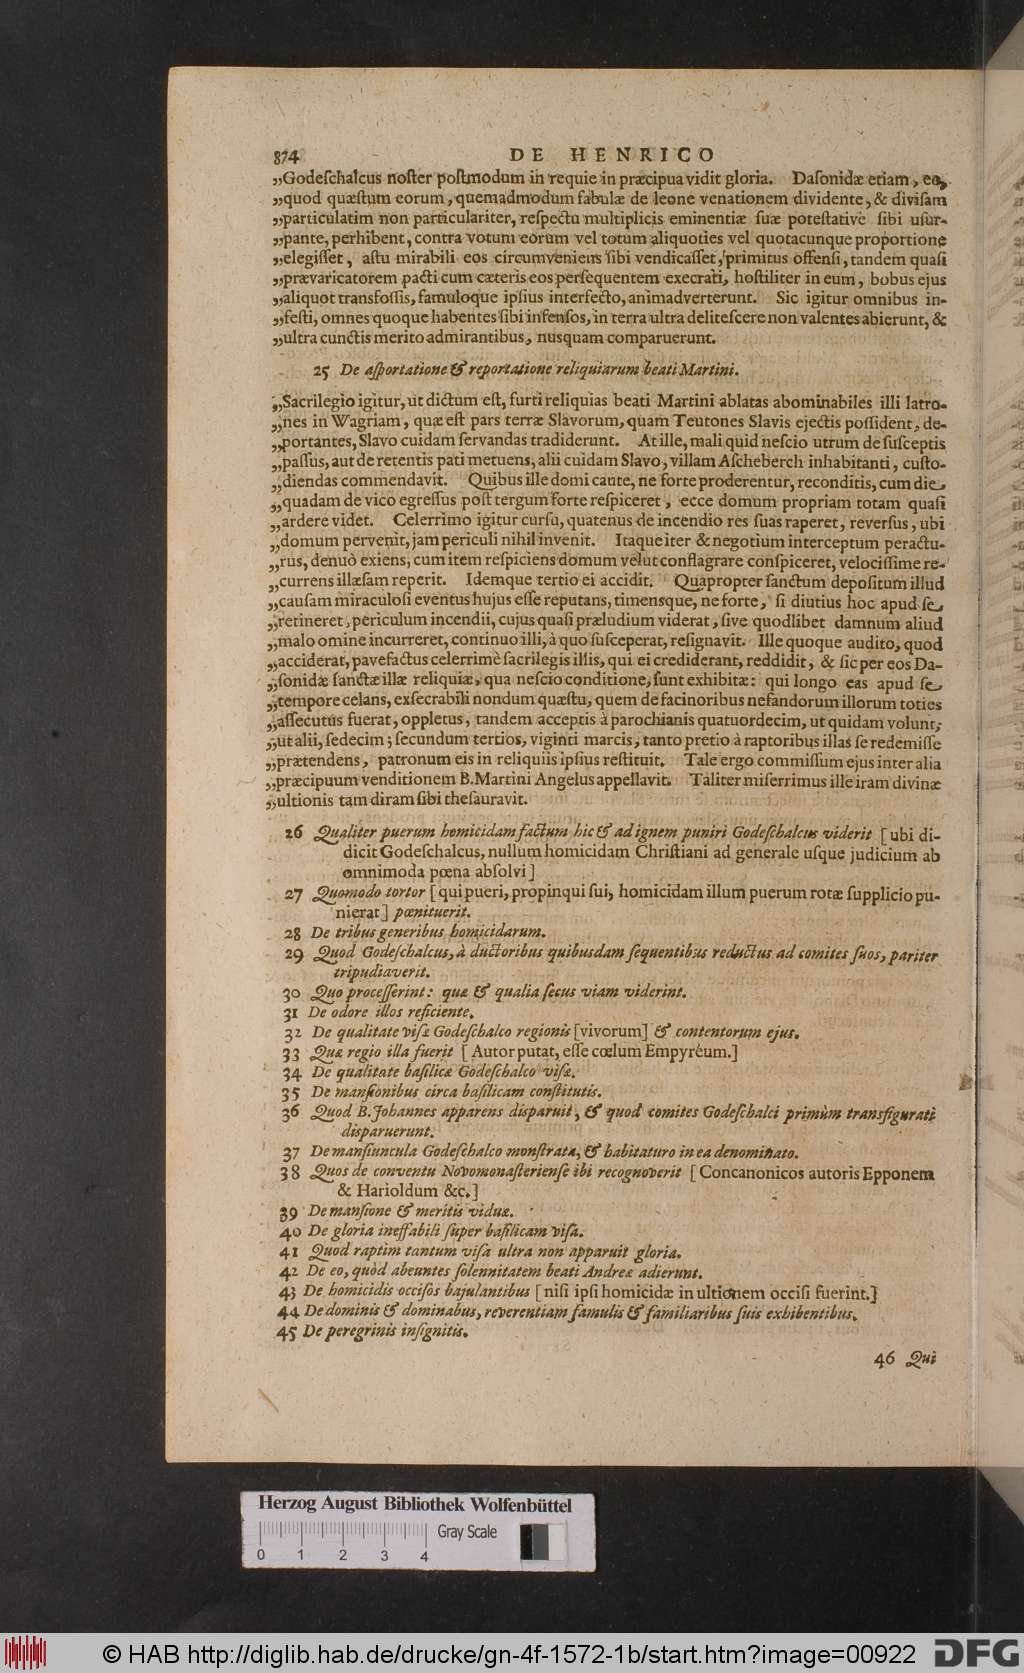 874 DE HENRICO
„Godeſchalcus noſter poſtmodum in requie in præcipua vidit gloria. Daſonidæ etiam, eo,
„quod quæſtum eorum, quemadmodum fabulæ de leone venationem dividente, & diviſam
„particulatim non particulariter, reſpectu multiplicis eminentiæ ſuæ poteſtativè ſibi uſur-
„pante, perhibent, contra votum eorum vel totum aliquoties vel quotacunque proportione
„elegiſſet, aſtu mirabili eos circumveniens ſibi vendicaſſet, primitus offenſi, tandem quaſi
„prævaricatorem pacti cum cæteris eos perſequentem execrati, hoſtiliter in eum, bobus ejus
„aliquot transfoſſis, famuloque ipſius interfecto, animadverterunt. Sic igitur omnibus in-
„feſti, omnes quoque habentes ſibi infenſos, in terra ultra deliteſcere non valentes abierunt, &
„ultra cunctis merito admirantibus, nusquam comparuerunt.
25 De aſportatione & reportatione reliquiarum beati Martini.
„Sacrilegio igitur, ut dictum eſt, furti reliquias beati Martini ablatas abominabiles illi latro-
„nes in Wagriam, quæ eſt pars terræ Slavorum, quam Teutones Slavis ejectis poſſident, de-
„portantes, Slavo cuidam ſervandas tradiderunt. At ille, mali quid neſcio utrum de ſuſceptis
„paſſus, aut de retentis pati metuens, alii cuidam Slavo, villam Aſcheberch inhabitanti, cuſto-
„diendas commendavit. Quibus ille domi caute, ne forte proderentur, reconditis, cum die
„quadam de vico egreſſus poſt tergum forte reſpiceret, ecce domum propriam totam quaſi
„ardere videt. Celerrimo igitur curſu, quatenus de incendio res ſuas raperet, reverſus, ubi
„domum pervenit, jam periculi nihil invenit. Itaque iter & negotium interceptum peractu-
„rus, denuò exiens, cum item reſpiciens domum velut conflagrare conſpiceret, velociſſime re-
„currens illæſam reperit. Idemque tertio ei accidit. Quapropter ſanctum depoſitum illud
„cauſam miraculoſi eventus hujus eſſe reputans, timensque, ne forte, ſi diutius hoc apud ſe
„retineret, periculum incendii, cujus quaſi præludium viderat, ſive quodlibet damnum aliud
„malo omine incurreret, continuo illi, à quo ſuſceperat, reſignavit. Ille quoque audito, quod
„acciderat, pavefactus celerrimè ſacrilegis illis, qui ei crediderant, reddidit, & ſic per eos Da-
„ſonidæ ſanctæ illæ reliquiæ, qua neſcio conditione, ſunt exhibitæ: qui longo eas apud ſe
„tempore celans, exſecrabili nondum quæſtu, quem de facinoribus nefandorum illorum toties
„aſſecutus fuerat, oppletus, tandem acceptis à parochianis quatuordecim, ut quidam volunt,
„ut alii, ſedecim; ſecundum tertios, viginti marcis, tanto pretio à raptoribus illas ſe redemiſſe
„prætendens, patronum eis in reliquiis ipſius reſtituit. Tale ergo commiſſum ejus inter alia
„præcipuum venditionem B. Martini Angelus appellavit. Taliter miſerrimus ille iram divinæ
„ultionis tam diram ſibi theſauravit.
26 Qualiter puerum homicidam factum hic & ad ignem puniri Godeſchalcus viderit [ubi di-
dicit Godeſchalcus, nullum homicidam Chriſtiani ad generale uſque judicium ab
omnimoda pœna abſolvi]
27 Quomodo tortor [qui pueri, propinqui ſui, homicidam illum puerum rotæ ſupplicio pu-
nierat] pœnituerit.
28 De tribus generibus homicidarum.
29 Quod Godeſchalcus, à ductoribus quibusdam ſequentibus reductus ad comites ſuos, pariter
tripudiaverit.
30 Quo proceſſerint: quæ & qualia ſecus viam viderint.
31 De odore illos reficiente.
32 De qualitate viſæ Godeſchalco regionis [vivorum] & contentorum ejus.
33 Quæ regio illa fuerit [Autor putat, eſſe cœlum Empyréum.]
34 De qualitate baſilicæ Godeſchalco viſæ.
35 De manſionibus circa baſilicam conſtitutis.
36 Quod B. Johannes apparens diſparuit, & quod comites Godeſchalci primùm transfigurati
diſparuerunt.
37 De manſiuncula Godeſchalco monſtrata, & habitaturo in ea denominato.
38 Quos de conventu Novomonaſterienſe ibi recognoverit [Concanonicos autoris Epponem
& Harioldum &c.]
39 De manſione & meritis viduæ.
40 De gloria ineffabili ſuper baſilicam viſa.
41 Quod raptim tantum viſa ultra non apparuit gloria.
42 De eo, quòd abeuntes ſolennitatem beati Andreæ adierunt.
43 De homicidis occiſos bajulantibus [niſi ipſi homicidæ in ultionem occiſi fuerint.]
44 De dominis & dominabus, reverentiam famulis & familiaribus ſuis exhibentibus.
45 De peregrinis inſignitis.
46 Qui
Herzog August Bibliothek Wolfenbüttel
Gray Scale
0 1 2 3 4
© HAB http://diglib.hab.de/drucke/gn-4f-1572-1b/start.htm?image=00922 DFG